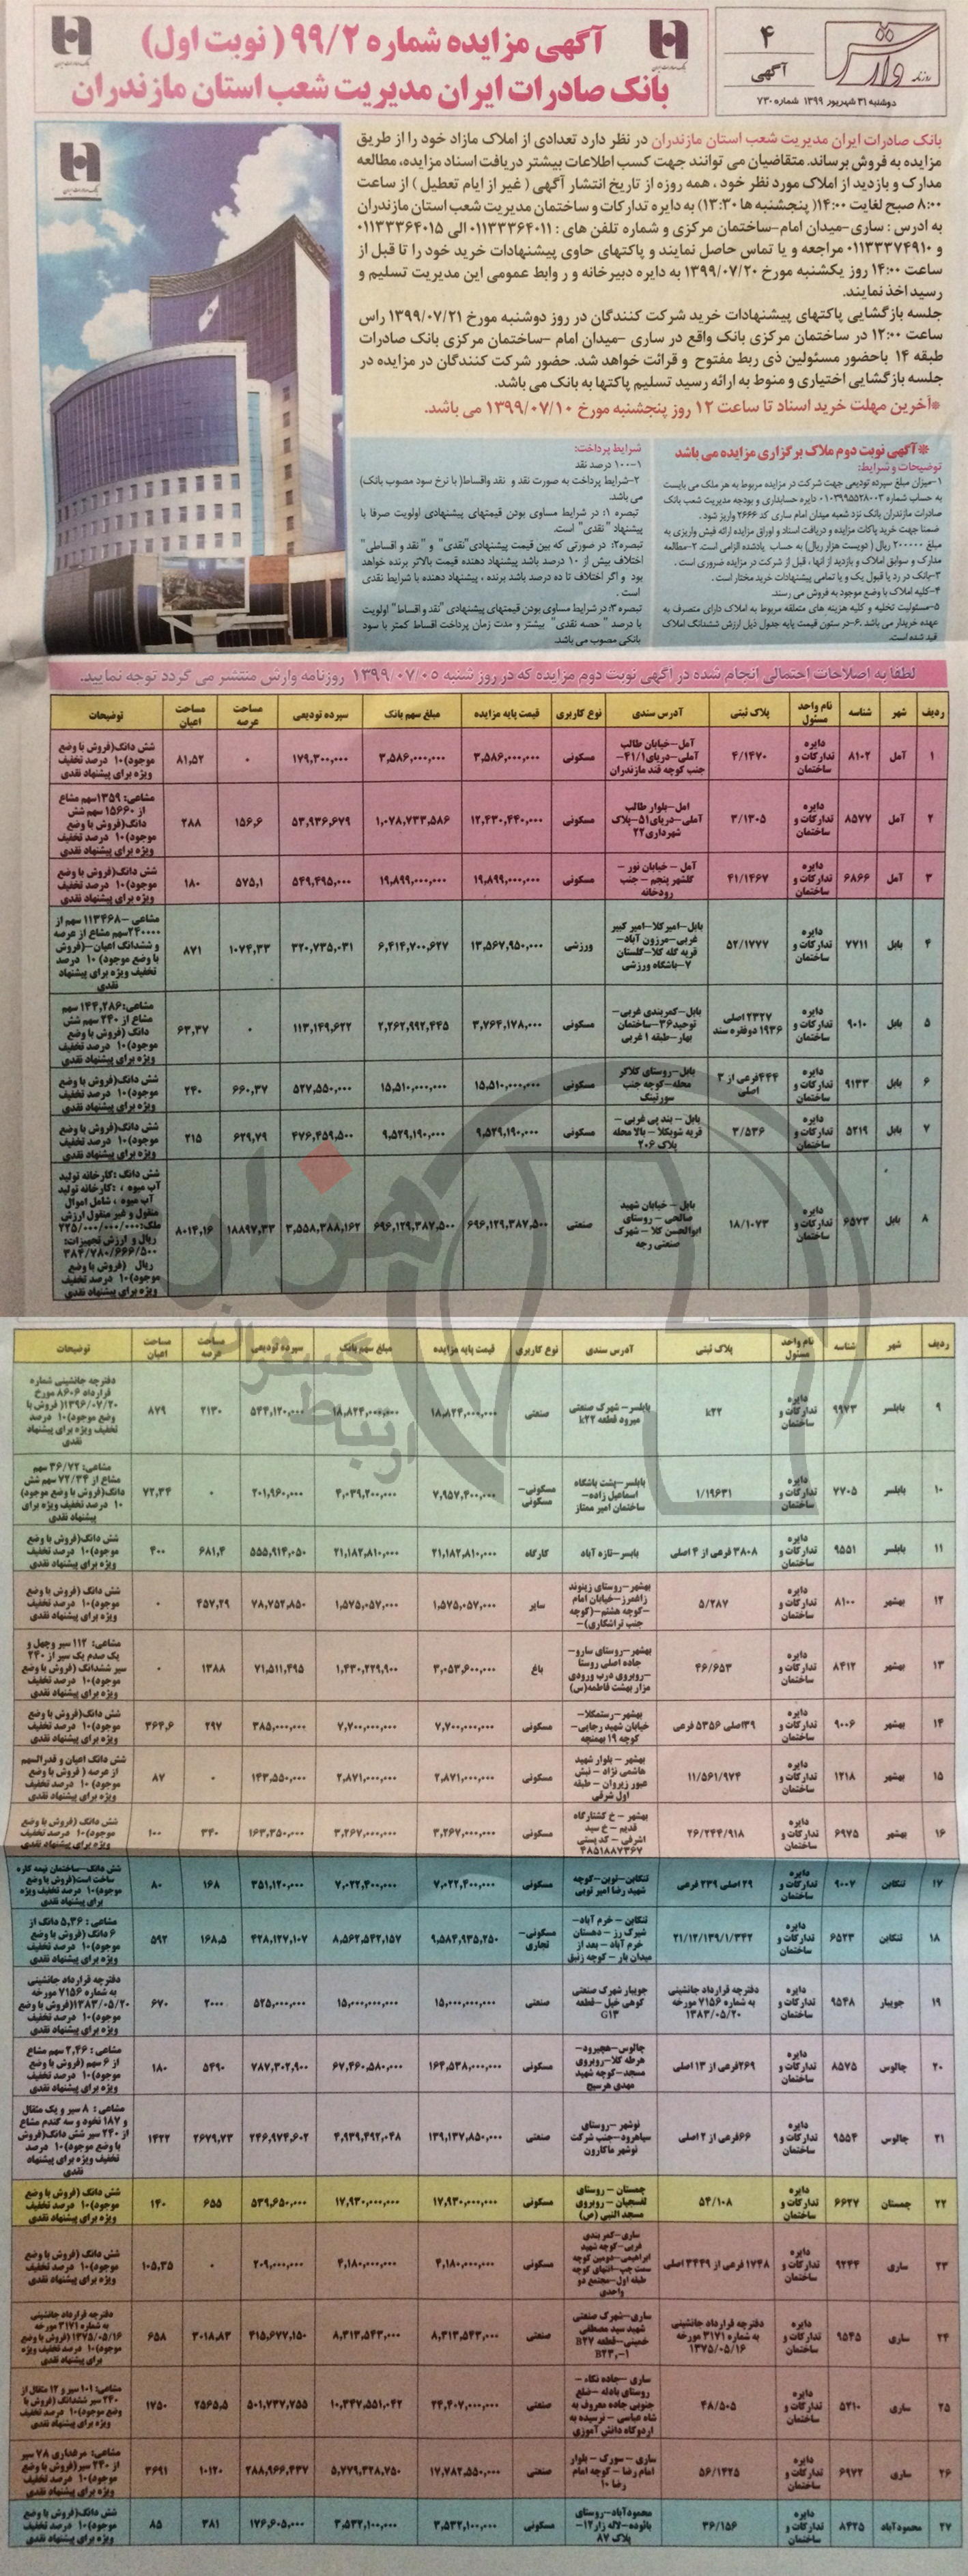 روزنامه
وارش
۴
آگهی
دوشنبه ۳۱ شهریور ۱۳۹۹ شماره ۷۳۰
آگهی مزایده شماره ۹۹/۲ ( نوبت اول)
بانک صادرات ایران مدیریت شعب استان مازندران
بانک صادرات ایران مدیریت شعب استان مازندران در نظر دارد تعدادی از املاک مازاد خود را از طریق
مزایده به فروش برساند. متقاضیان می توانند جهت کسب اطلاعات بیشتر دریافت اسناد مزایده، مطالعه
مدارک و بازدید از املاک مورد نظر خود ، همه روزه از تاریخ انتشار آگهی ( غیر از ایام تعطیل ) از ساعت
۸:۰۰ صبح لغایت ۱۴:۰۰( پنجشنبه ها ۱۳:۳۰) به دایره تدارکات و ساختمان مدیریت شعب استان مازندران
به ادرس : ساری-میدان امام-ساختمان مرکزی و شماره تلفن های : ۰۱۱۳۳۳۶۴۰۱۱ الی ۰۱۱۳۳۳۶۴۰۱۵
و ۰۱۱۳۳۳۷۴۹۱۰ مراجعه و یا تماس حاصل نمایند و پاکتهای حاوی پیشنهادات خرید خود را تا قبل از
ساعت ۱۴:۰۰ روز یکشنبه مورخ ۱۳۹۹/۰۷/۲۰ به دایره دبیرخانه و روابط عمومی این مدیریت تسلیم و
رسید اخذ نمایند.
جلسه بازگشایی پاکتهای پیشنهادات خرید شرکت کنندگان در روز دوشنبه مورخ ۱۳۹۹/۰۷/۲۱ راس
ساعت ۱۲:۰۰ در ساختمان مرکزی بانک واقع در ساری -میدان امام -ساختمان مرکزی بانک صادرات
طبقه ۱۴ باحضور مسئولین ذی ربط مفتوح و قرائت خواهد شد. حضور شرکت کنندگان در مزایده در
جلسه بازگشایی اختیاری و منوط به ارائه رسید تسلیم پاکتها به بانک می باشد.
*آخرین مهلت خرید اسناد تا ساعت ۱۲ روز پنجشنبه مورخ ۱۳۹۹/۰۷/۱۰ می باشد.
*آگهی نوبت دوم ملاک برگزاری مزایده می باشد
توضیحات و شرایط:
۱-میزان مبلغ سپرده تودیعی جهت شرکت در مزایده مربوط به هر ملک می بایست
به حساب شماره ۰۱۰۳۹۹۵۵۲۸۰۰۳ دایره حسابداری و بودجه مدیریت شعب بانک
صادرات مازندران بانک نزد شعبه میدان امام ساری کد ۲۶۶۶ واریز شود .
ضمنا جهت خرید پاکات مزایده و دریافت اسناد و اوراق مزایده ارائه فیش واریزی به
مبلغ ۲۰۰۰۰۰ ریال ( دویست هزار ریال) به حساب یادشده الزامی است. ۲-مطالعه
مدارک و سوابق املاک و بازدید از آنها ، قبل از شرکت در مزایده ضروری است .
۳-بانک در رد یا قبول یک و یا تمامی پیشنهادات خرید مختار است .
۴-کلیه املاک با وضع موجود به فروش می رسند.
۵-مسئولیت تخلیه و کلیه هزینه های متعلقه مربوط به املاک دارای متصرف به
عهده خریدار می باشد .۶-در ستون قیمت پایه جدول ذیل ارزش ششدانگ املاک
قید شده است.
شرایط پرداخت:
۱-۱۰۰ درصد نقد
۲-شرایط پرداخت به صورت نقد و نقد واقساط( با نرخ سود مصوب بانک)
می باشد.
تبصره ۱: در شرایط مساوی بودن قیمتهای پیشنهادی اولویت صرفا با
پیشنهاد "نقدی" است.
تبصره۲: در صورتی که بین قیمت پیشنهادی"نقدی" و "نقد و اقساطی"
اختلاف بیش از ۱۰ درصد باشد پیشنهاد دهنده قیمت بالاتر برنده خواهد
بود و اگر اختلاف تا ده درصد باشد برنده ، پیشنهاد دهنده با شرایط نقدی
است .
تبصره ۳: در شرایط مساوی بودن قیمتهای پیشنهادی "نقد و اقساط" اولویت
با درصد " حصه نقدی" بیشتر و مدت زمان پرداخت اقساط کمتر با سود
بانکی مصوب می باشد.
لطفا به اصلاحات احتمالی انجام شده در آگهی نوبت دوم مزایده که در روز شنبه ۱۳۹۹/۰۷/۰۵ روزنامه وارش منتشر می گردد توجه نمایید.
ردیف شهر شناسه نام واحد مسئول پلاک ثبتی آدرس سندی نوع کاربری قیمت پایه مزایده مبلغ سهم بانک سپرده تودیعی مساحت عرصه مساحت اعیان توضیحات
۱ آمل ۸۱۰۲ دایره تدارکات و ساختمان ۴/۱۴۷۰ آمل-خیابان طالب آملی-دریای۴۱/۱- جنب کوچه قند مازندران مسکونی ۳,۵۸۶,۰۰۰,۰۰۰ ۳,۵۸۶,۰۰۰,۰۰۰ ۱۷۹,۳۰۰,۰۰۰ ۰ ۸۱,۵۲ شش دانگ(فروش با وضع موجود)۱۰ درصد تخفیف ویژه برای پیشنهاد نقدی
۲ آمل ۸۵۷۷ دایره تدارکات و ساختمان ۳/۱۳۰۵ امل-بلوار طالب آملی-دریای۵۱-پلاک شهرداری۲۲ مسکونی ۱۲,۴۳۰,۴۴۰,۰۰۰ ۱,۰۷۸,۷۳۳,۵۸۶ ۵۳,۹۳۶,۶۷۹ ۱۵۶,۶ ۲۸۸ مشاعی: ۱۳۵۹سهم مشاع از ۱۵۶۶۰ سهم شش دانگ(فروش با وضع موجود)۱۰ درصد تخفیف ویژه برای پیشنهاد نقدی
۳ آمل ۶۸۶۶ دایره تدارکات و ساختمان ۴۱/۱۴۶۷ آمل - خیابان نور - گلشهر پنجم - جنب رودخانه مسکونی ۱۹,۸۹۹,۰۰۰,۰۰۰ ۱۹,۸۹۹,۰۰۰,۰۰۰ ۵۴۹,۴۹۵,۰۰۰ ۵۷۵,۱ ۱۸۰ شش دانگ(فروش با وضع موجود)۱۰ درصد تخفیف ویژه برای پیشنهاد نقدی
۴ بابل ۷۷۱۱ دایره تدارکات و ساختمان ۵۲/۱۷۷۷ بابل-امیرکلا-امیر کبیر غربی-مرزون آباد- قریه گله کلا-گلستان ۷-باشگاه ورزشی ورزشی ۱۳,۵۶۷,۹۵۰,۰۰۰ ۶,۴۱۴,۷۰۰,۶۲۷ ۳۲۰,۷۳۵,۰۳۱ ۱۰۷۴,۳۳ ۸۷۱ مشاعی -۱۱۳۴۶۸ سهم از ۲۴۰۰۰۰سهم مشاع از عرصه و ششدانگ اعیان-(فروش با وضع موجود)۱۰ درصد تخفیف ویژه برای پیشنهاد نقدی
۵ بابل ۹۰۱۰ دایره تدارکات و ساختمان ۲۳۲۷ اصلی ۱۹۳۶ دوفقره سند بابل-کمربندی غربی- توحید۳۶-ساختمان بهار-طبقه ۱ غربی مسکونی ۳,۷۶۴,۱۷۸,۰۰۰ ۲,۲۶۲,۹۹۲,۴۴۵ ۱۱۳,۱۴۹,۶۲۲ ۰ ۶۳,۳۷ مشاعی:۱۴۴,۲۸۶ سهم مشاع از ۲۴۰ سهم شش دانگ (فروش با وضع موجود)۱۰ درصد تخفیف ویژه برای پیشنهاد نقدی
۶ بابل ۹۱۳۳ دایره تدارکات و ساختمان ۴۴۴فرعی از ۳ اصلی بابل-روستای کلاگر محله-کوچه جنب سورتینگ مسکونی ۱۵,۵۱۰,۰۰۰,۰۰۰ ۱۵,۵۱۰,۰۰۰,۰۰۰ ۵۲۷,۵۵۰,۰۰۰ ۶۶۰,۳۷ ۲۴۰ شش دانگ(فروش با وضع موجود)۱۰ درصد تخفیف ویژه برای پیشنهاد نقدی
۷ بابل ۵۲۱۹ دایره تدارکات و ساختمان ۳/۵۳۶ بابل - بندپی غربی - قریه شوبکلا - بالا محله پلاک ۲۰۶ مسکونی ۹,۵۲۹,۱۹۰,۰۰۰ ۹,۵۲۹,۱۹۰,۰۰۰ ۴۷۶,۴۵۹,۵۰۰ ۶۲۹,۷۹ ۲۱۵ شش دانگ(فروش با وضع موجود)۱۰ درصد تخفیف ویژه برای پیشنهاد نقدی
۸ بابل ۶۵۷۳ دایره تدارکات و ساختمان ۱۸/۱۰۷۳ بابل - خیابان شهید صالحی - روستای ابوالحسن کلا - شهرک صنعتی رجه صنعتی ۶۹۶,۱۲۹,۳۸۷,۵۰۰ ۶۹۶,۱۲۹,۳۸۷,۵۰۰ ۳,۵۵۸,۳۸۸,۱۶۲ ۱۸۸۹۷,۳۳ ۸۰۱۴,۱۶ شش دانگ :کارخانه تولید آب میوه ، شامل اموال منقول و غیر منقول ارزش ملک:۲۲۵/۰۰۰/۰۰۰/۰۰۰ ریال و ارزش تجهیزات: ریال (فروش با وضع موجود)۱۰ درصد تخفیف ویژه برای پیشنهاد نقدی
ردیف شهر شناسه نام واحد مسئول پلاک ثبتی آدرس سندی نوع کاربری قیمت پایه مزایده مبلغ سهم بانک سپرده تودیعی مساحت عرصه مساحت اعیان توضیحات
۹ بابلسر ۹۹۷۳ دایره تدارکات و ساختمان k۲۲ بابلسر- شهرک صنعتی میرود قطعه k۲۲ صنعتی ۱۸,۸۲۴,۰۰۰,۰۰۰ ۱۸,۸۲۴,۰۰۰,۰۰۰ ۵۴۴,۱۲۰,۰۰۰ ۲۱۳۰ ۸۷۹ دفترچه جانشینی شماره قرارداد ۸۶۰۶ مورخ ۱۳۹۶/۰۷/۲۰( فروش با وضع موجود)۱۰ درصد تخفیف ویژه برای پیشنهاد نقدی
۱۰ بابلسر ۷۷۰۵ دایره تدارکات و ساختمان ۱/۱۹۶۳۱ بابلسر-پشت باشگاه اسماعیل زاده- ساختمان امیر ممتاز مسکونی- مسکونی ۷,۹۵۷,۴۰۰,۰۰۰ ۴,۰۳۹,۲۰۰,۰۰۰ ۲۰۱,۹۶۰,۰۰۰ ۰ ۷۲,۳۴ مشاعی: ۳۶/۷۲ سهم مشاع از ۷۲/۳۴ سهم شش دانگ(فروش با وضع موجود) ۱۰ درصد تخفیف ویژه برای پیشنهاد نقدی
۱۱ بابلسر ۹۵۵۱ دایره تدارکات و ساختمان ۳۸۰۸ فرعی از ۴ اصلی بابسر-تازه آباد کارگاه ۲۱,۱۸۲,۸۱۰,۰۰۰ ۲۱,۱۸۲,۸۱۰,۰۰۰ ۵۵۵,۹۱۴,۰۵۰ ۶۸۱,۴ ۴۰۰ شش دانگ(فروش با وضع موجود)۱۰ درصد تخفیف ویژه برای پیشنهاد نقدی
۱۲ بهشهر ۸۱۰۰ دایره تدارکات و ساختمان ۵/۲۸۷ بهشهر-روستای زینوند زاغمرز-خیابان امام -کوچه هشتم-(کوچه جنب تراشکاری)- سایر ۱,۵۷۵,۰۵۷,۰۰۰ ۱,۵۷۵,۰۵۷,۰۰۰ ۷۸,۷۵۲,۸۵۰ ۴۵۷,۲۹ ۰ شش دانگ (فروش با وضع موجود)۱۰ درصد تخفیف ویژه برای پیشنهاد نقدی
۱۳ بهشهر ۸۴۱۲ دایره تدارکات و ساختمان ۴۶/۶۵۳ بهشهر-روستای سارو- جاده اصلی روستا -روبروی درب ورودی مزار بهشت فاطمه(س) باغ ۳,۰۵۳,۶۰۰,۰۰۰ ۱,۴۳۰,۲۲۹,۹۰۰ ۷۱,۵۱۱,۴۹۵ ۱۳۸۸ ۰ مشاعی: ۱۱۲ سیر وچهل و یک صدم یک سیر از ۲۴۰ سیر ششدانگ (فروش با وضع موجود)۱۰ درصد تخفیف ویژه برای پیشنهاد نقدی
۱۴ بهشهر ۹۰۰۶ دایره تدارکات و ساختمان ۳۹اصلی ۵۳۵۶ فرعی بهشهر-رستمکلا- خیابان شهید رجایی- کوچه ۱۹ بهمنچه مسکونی ۷,۷۰۰,۰۰۰,۰۰۰ ۷,۷۰۰,۰۰۰,۰۰۰ ۳۸۵,۰۰۰,۰۰۰ ۲۹۷ ۳۶۴,۶ شش دانگ(فروش با وضع موجود)۱۰ درصد تخفیف ویژه برای پیشنهاد نقدی
۱۵ بهشهر ۱۲۱۸ دایره تدارکات و ساختمان ۱۱/۵۶۱/۹۷۴ بهشهر - بلوار شهید هاشمی نژاد - نبش عبور زیروان - طبقه اول شرقی مسکونی ۲,۸۷۱,۰۰۰,۰۰۰ ۲,۸۷۱,۰۰۰,۰۰۰ ۱۴۳,۵۵۰,۰۰۰ ۰ ۸۷ شش دانگ اعیان و قدرالسهم از عرصه ( فروش با وضع موجود)۱۰ درصد تخفیف ویژه برای پیشنهاد نقدی
۱۶ بهشهر ۶۹۷۵ دایره تدارکات و ساختمان ۲۶/۲۴۴/۹۱۸ بهشهر - خ کشتارگاه قدیم - خ سید اشرفی - کد پستی ۴۸۵۱۸۸۷۳۶۷ مسکونی ۳,۲۶۷,۰۰۰,۰۰۰ ۳,۲۶۷,۰۰۰,۰۰۰ ۱۶۳,۳۵۰,۰۰۰ ۳۴۰ ۱۰۰ شش دانگ (فروش با وضع موجود)۱۰ درصد تخفیف ویژه برای پیشنهاد نقدی
۱۷ تنکابن ۹۰۰۷ دایره تدارکات و ساختمان ۲۹ اصلی ۲۳۹ فرعی تنکابن-توبن-کوچه شهید رضا امیر توبی مسکونی ۷,۰۲۲,۴۰۰,۰۰۰ ۷,۰۲۲,۴۰۰,۰۰۰ ۳۵۱,۱۲۰,۰۰۰ ۱۶۸ ۸۰ شش دانگ-ساختمان نیمه کاره ساخت است(فروش با وضع موجود)۱۰ درصد تخفیف ویژه برای پیشنهاد نقدی
۱۸ تنکابن ۶۵۲۳ دایره تدارکات و ساختمان ۲۱/۱۲/۱۳۹/۱/۳۴۲ تنکابن - خرم آباد- شیرک رز - دهستان خرم آباد - بعد از میدان بار - کوچه زنبق مسکونی- تجاری ۹,۵۸۴,۹۳۵,۲۵۰ ۸,۵۶۲,۵۴۲,۱۵۷ ۴۲۸,۱۲۷,۱۰۷ ۱۶۸,۵ ۵۹۲ مشاعی : ۵,۳۶ دانگ از ۶ دانگ (فروش با وضع موجود)۱۰ درصد تخفیف ویژه برای پیشنهاد نقدی
۱۹ جویبار ۹۵۴۸ دایره تدارکات و ساختمان دفترچه قرارداد جانشینی به شماره ۷۱۵۶ مورخه ۱۳۸۳/۰۵/۲۰ جویبار شهرک صنعتی کوهی خیل-قطعه G۱۳ صنعتی ۱۵,۰۰۰,۰۰۰,۰۰۰ ۱۵,۰۰۰,۰۰۰,۰۰۰ ۵۲۵,۰۰۰,۰۰۰ ۲۰۰۰ ۶۷۰ دفترچه قرارداد جانشینی به شماره ۷۱۵۶ مورخه ۱۳۸۳/۰۵/۲۰(فروش با وضع موجود)۱۰ درصد تخفیف ویژه برای پیشنهاد نقدی
۲۰ چالوس ۸۵۷۵ دایره تدارکات و ساختمان ۲۶۹فرعی از ۱۳ اصلی چالوس-هچیرود- هرطه کلا-روبروی مسجد-کوچه شهید مهدی هرسیج مسکونی ۱۶۴,۵۳۸,۰۰۰,۰۰۰ ۶۷,۴۶۰,۵۸۰,۰۰۰ ۷۸۷,۳۰۲,۹۰۰ ۵۴۹۰ ۱۸۰ مشاعی : ۲,۴۶ سهم مشاع از ۶ سهم (فروش با وضع موجود)۱۰ درصد تخفیف ویژه برای پیشنهاد نقدی
۲۱ چالوس ۹۵۵۴ دایره تدارکات و ساختمان ۶۶فرعی از ۲ اصلی نوشهر-روستای سیاهرود-جنب شرکت نوشهر ماکارون صنعتی ۱۳۹,۱۳۷,۸۵۰,۰۰۰ ۴,۹۳۹,۴۹۲,۰۴۸ ۲۴۶,۹۷۴,۶۰۲ ۲۶۷۹,۷۳ ۱۴۲۲ مشاعی : ۸ سیر و یک مثقال و ۱۸۷ نخود و سه گندم مشاع از ۲۴۰ سیر شش دانگ(فروش با وضع موجود)۱۰ درصد تخفیف ویژه برای پیشنهاد نقدی
۲۲ چمستان ۶۶۲۷ دایره تدارکات و ساختمان ۵۴/۱۰۸ چمستان - روستای لفسجیان - روبروی مسجد النبی (ص) مسکونی ۱۷,۹۳۰,۰۰۰,۰۰۰ ۱۷,۹۳۰,۰۰۰,۰۰۰ ۵۳۹,۶۵۰,۰۰۰ ۶۵۵ ۱۴۰ شش دانگ (فروش با وضع موجود)۱۰ درصد تخفیف ویژه برای پیشنهاد نقدی
۲۳ ساری ۹۲۴۴ دایره تدارکات و ساختمان ۱۷۴۸ فرعی از ۳۴۴۹ اصلی ساری-کمربندی غربی-کوچه شهید ابراهیمی-دومین کوچه سمت چپ-انتهای کوچه طبقه اول-مجتمع دو واحدی مسکونی ۴,۱۸۰,۰۰۰,۰۰۰ ۴,۱۸۰,۰۰۰,۰۰۰ ۲۰۹,۰۰۰,۰۰۰ ۰ ۱۰۵,۳۵ شش دانگ (فروش با وضع موجود)۱۰ درصد تخفیف ویژه برای پیشنهاد نقدی
۲۴ ساری ۹۵۴۵ دایره تدارکات و ساختمان دفترچه قرارداد جانشینی به شماره ۳۱۷۱ مورخه ۱۳۷۵/۰۵/۱۶ ساری-شهرک صنعتی شهید سید مصطفی خمینی-قطعه B۲۷ صنعتی ۸,۳۱۳,۵۴۳,۰۰۰ ۸,۳۱۳,۵۴۳,۰۰۰ ۴۱۵,۶۷۷,۱۵۰ ۳۰۱۸,۸۳ ۶۵۸ دفترچه قرارداد جانشینی به شماره ۳۱۷۱ مورخه ۱۳۷۵/۰۵/۱۶(فروش با وضع موجود)۱۰ درصد تخفیف ویژه برای پیشنهاد نقدی
۲۵ ساری ۵۲۱۰ دایره تدارکات و ساختمان ۴۸/۵۰۵ ساری - جاده نکاء - روستای بادله - ضلع جنوبی جاده معروف به شاه عباسی - نرسیده به اردوگاه دانش آموزی صنعتی ۲۴,۴۰۷,۰۰۰,۰۰۰ ۱۰,۳۴۷,۵۵۱,۰۴۲ ۵۰۱,۷۳۷,۷۵۵ ۲۵۶۵,۵ ۱۷۵۰ مشاعی: ۱۰۱ سیر و ۱۲ مثقال از ۲۴۰ سیر ششدانگ (فروش با وضع موجود)۱۰ درصد تخفیف ویژه برای پیشنهاد نقدی
۲۶ ساری ۶۹۷۲ دایره تدارکات و ساختمان ۵۶/۱۴۲۵ ساری - سورک - بلوار امام رضا - کوچه امام رضا ۱۰ صنعتی ۱۷,۷۸۲,۵۵۰,۰۰۰ ۵,۷۷۹,۳۲۸,۷۵۰ ۲۸۸,۹۶۶,۴۳۷ ۱۰۱۲۰ ۳۶۹۱ مشاعی: مرغداری ۷۸ سیر از ۲۴۰ سیر(فروش با وضع موجود)۱۰ درصد تخفیف ویژه برای پیشنهاد نقدی
۲۷ محمودآباد ۸۴۲۵ دایره تدارکات و ساختمان ۳۶/۱۵۶ محمودآباد-روستای بائوده-لاله زار۱۲- پلاک ۸۷ مسکونی ۳,۵۳۲,۱۰۰,۰۰۰ ۳,۵۳۲,۱۰۰,۰۰۰ ۱۷۶,۶۰۵,۰۰۰ ۳۸۱ ۸۵ شش دانگ (فروش با وضع موجود)۱۰ درصد تخفیف ویژه برای پیشنهاد نقدی